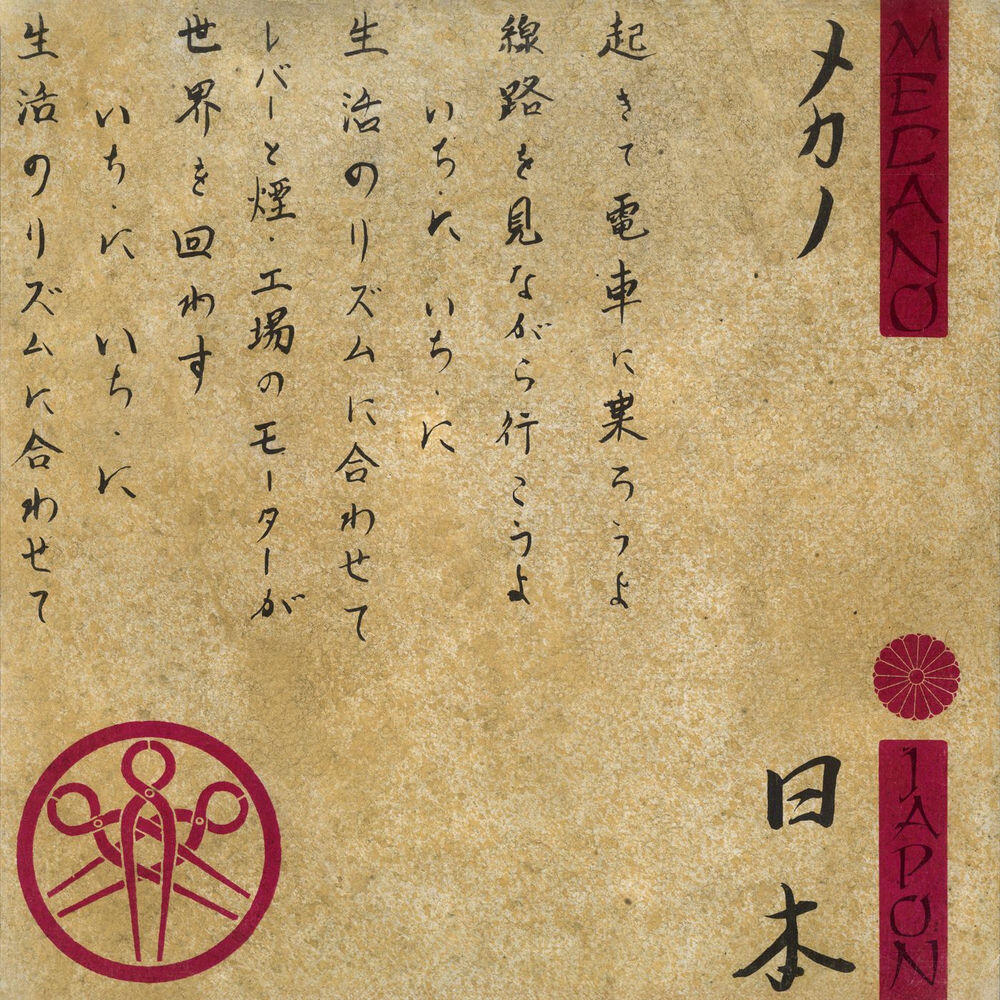 MECANO
JAPON
メカノ
日本
起きて電車に乗ろうよ
線路を見ながら行こうよ
いち・に いち・に
生活のリズムに合わせて
レバーと煙・工場のモーターが
世界を回わす
いち・に いち・に
生活のリズムに合わせて